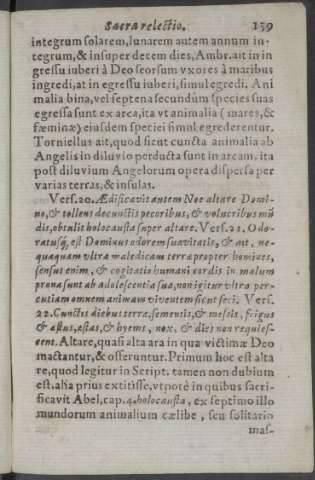 Sacra relectio. 159
integrum solarem, lunarem autem annum in-
tegrum, & insuper decem dies, Ambr. ait in in
gressu iuberi à Deo seorsum vxores à maribus
ingredi, at in egressu iuberi, simul egredi. Ani
malia bina, vel septena secundùm species suas
egressa sunt ex arca, ita vt animalia (mares, &
fæminæ) eiusdem speciei simul egrederentur.
Torniellus ait, quod sicut cuncta animalia ab
Angelis in diluvio perducta sunt in arcam, ita
post diluvium Angelorum opera dispersa per
varias terras, & insulas.
Vers. 20. Ædificavit autem Noe altare Domi-
no, & tollens de cunctis pecoribus, & volucribus mũ
dis, obtulit holocausta super altare. Vers. 21. Odo-
ratusq́, est Dominus odorem suavitatis, & ait, ne-
quaquam vltra maledicam terræ propter homines,
sensus enim, & cogitatio humani cordis in malum
prona sunt ab adolescentia sua, non igitur vltra per-
cutiam omnem animam viventem sicut feci. Vers.
22. Cunctis diebus terræ, sementis, & messis, frigus
& æstus, æstas, & hyems, nox, & dies non requies-
cent. Altare, quasi alta ara in qua victimæ Deo
mactantur, & offeruntur. Primum hoc est alta
re, quod legitur in Script. tamen non dubium
est, alia prius extitisse, vtpotè in quibus sacri-
ficavit Abel, cap. 4. holocausta, ex septimo illo
mundorum animalium cælibe, seu solitario
mas-